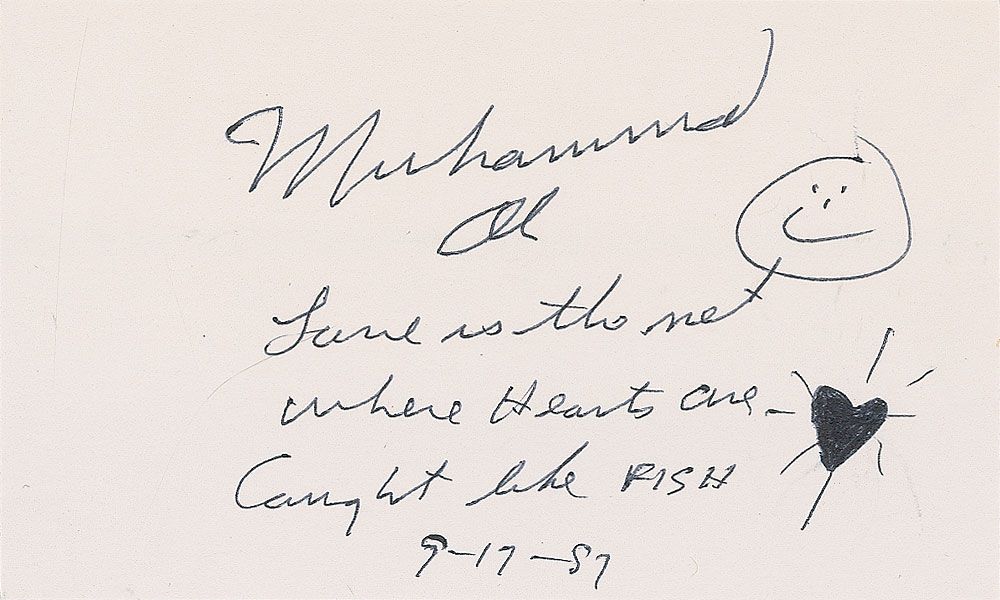 Muhammad
Ali
Love is the net
where Hearts are
Caught like FISH
9-17-87